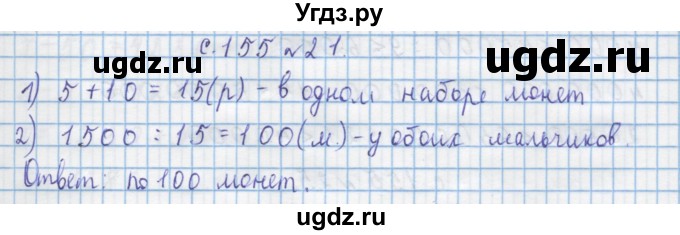 Угдз.ру
с.155 №21.
ugdz.ru
ugdz.ru
1) 5+10=15(р) - в одном наборе монет
2) 1500:15=100(м) - у обоих мальчиков.
Ответ: по 100 монет.
ugdz.ru
ugdz.ru